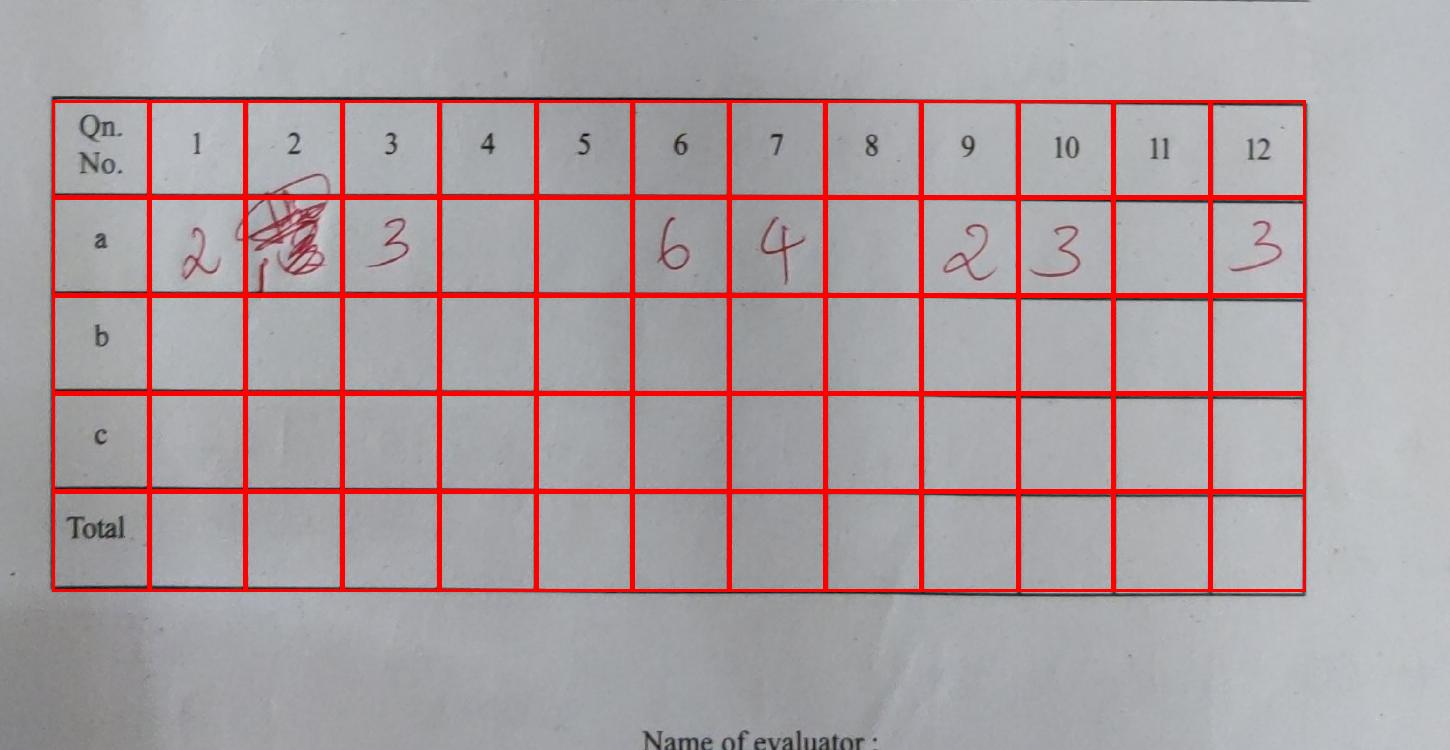 Qn. No. 1 2 3 4 5 6 7 8 9 10 11 12
a 2 3 6 4 2 3 3
b
c
Total
Name of evaluator :